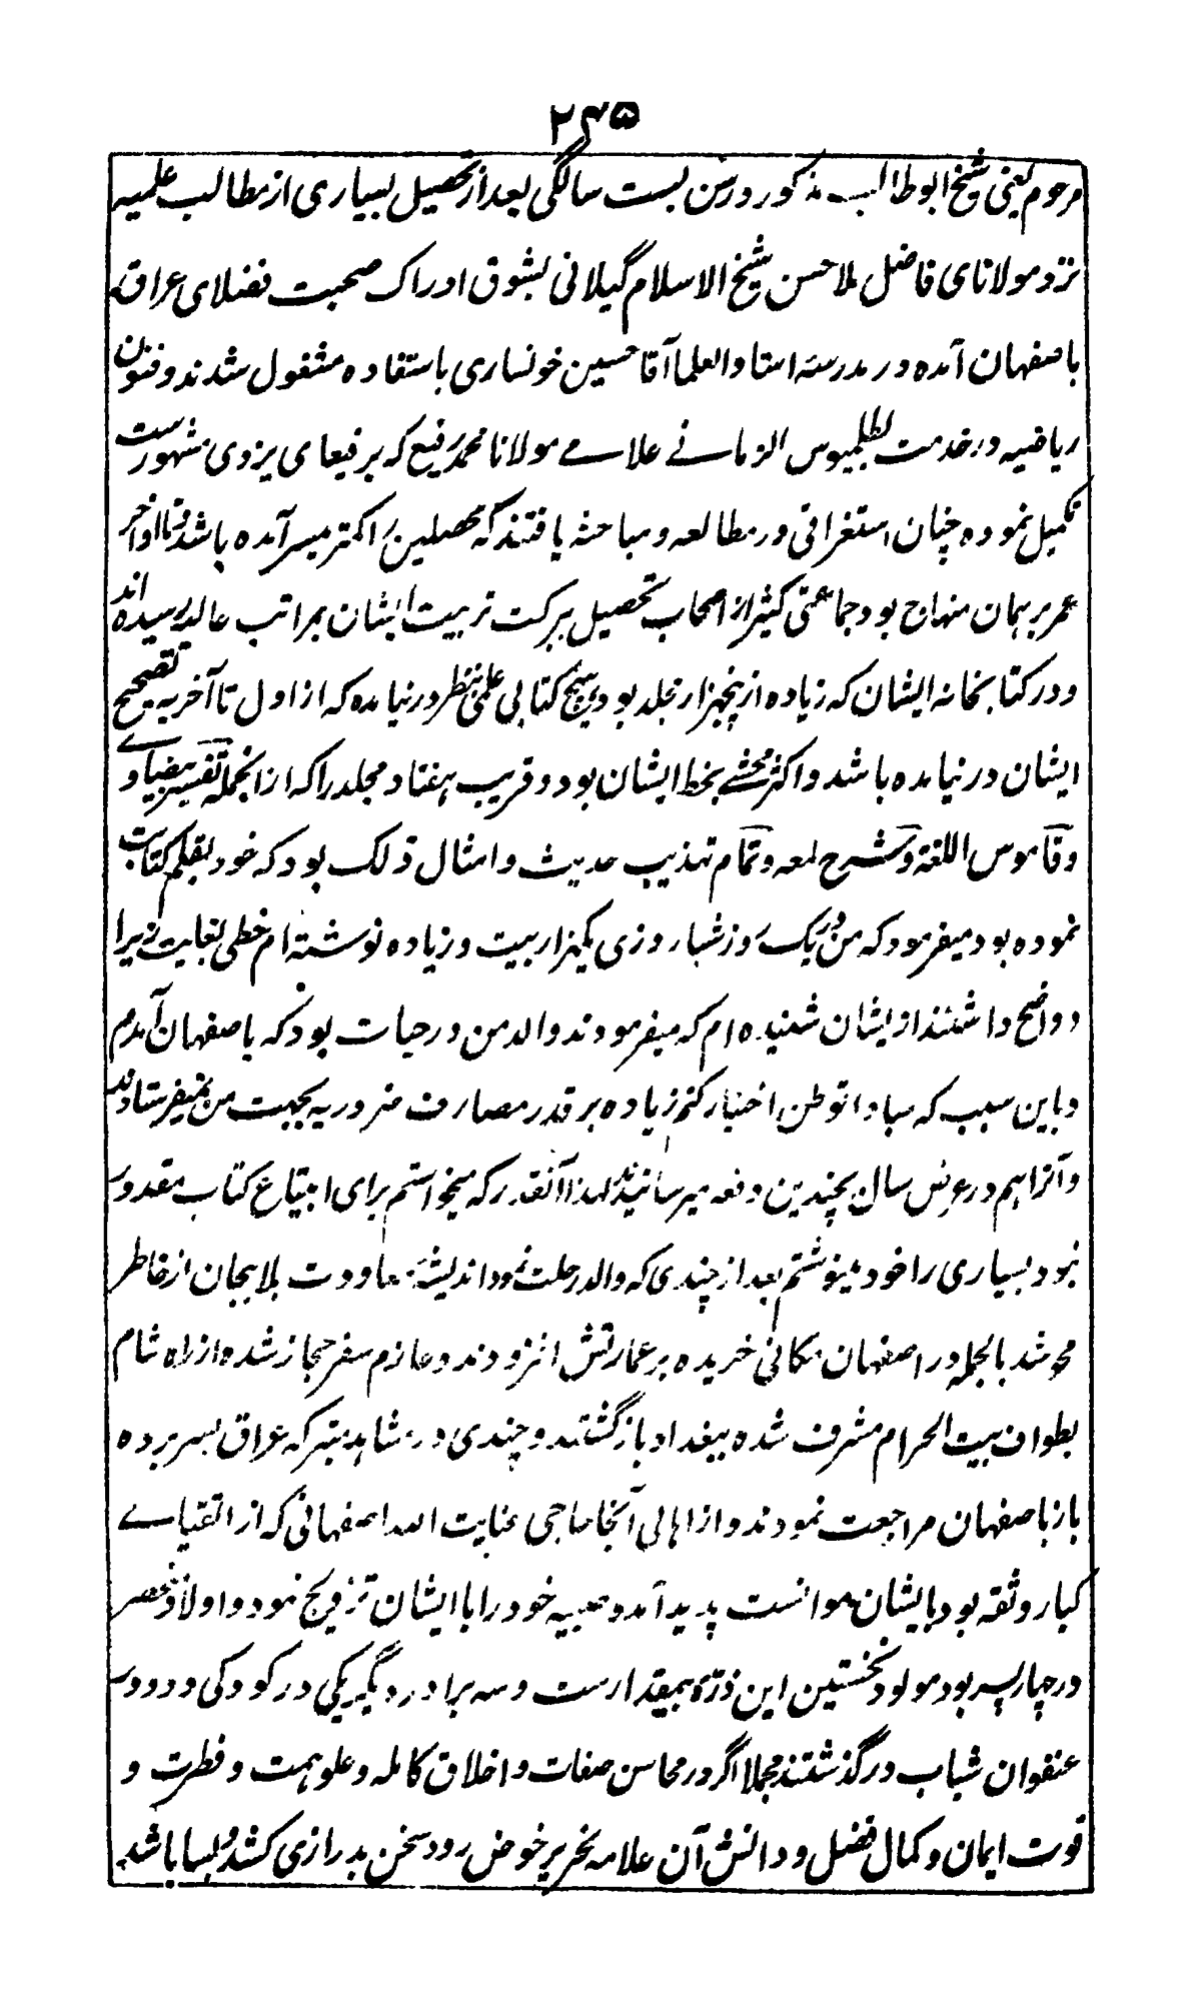 ۲۴۵
مرحوم یعنی شیخ ابوطالب مذکور در سن بست سالگی بعد از تحصیل بسیاری از مطالب علمیه
نزد مولانای فاضل ملا حسن شیخ الاسلام گیلانی بشوق ادراک صحبت فضلای عراق
باصفهان آمده در مدرسهٔ استاد العلما آقا حسین خونساری باستفاده مشغول شدند و فنون
ریاضیه در خدمت بطلمیوس الزمانے علامے مولانا محمد رفیع که برفیعای یزدی مشهورست
تکمیل نموده چنان استغراقی در مطالعه و مباحثه یافتند که محصلین را کمتر میسر آمده باشد و تا اواخر
عمر بر همان منهاج بود جماعتی کثیر از اصحاب تحصیل ببرکت تربیت ایشان بمراتب عالیه رسیده اند
و در کتابخانه ایشان که زیاده از پنجهزار مجلد بود هیچ کتابی علمی بنظر در نیامده که از اول تا آخر به تصحیح
ایشان در نیامده باشد و اکثر محشے بخط ایشان بود و قریب هفتاد مجلد را که از انجمله تفسیر بیضاوے
و قاموس اللغة و شرح لمعه و تمام تهذیب حدیث و امثال ذلک بود که خود بقلم کتابت
نموده بود میفرمود که من در یک روز شباروزی یکهزار بیت و زیاده نوشته ام خطی بغایت زیبا
و واضح داشتند از ایشان شنیده ام که میفرمودند والد من در حیات بود که باصفهان آمدم
و باین سبب که مبادا توطن اختیار کنم زیاده بر قدر مصارف ضروریه بجهت من نمیفرستادند
و آنرا هم در عرض سال بچندین دفعه میرسانیدند لهذا آنقدر که میخواستم برای ابتیاع کتاب مقدور
نبود بسیاری را خود مینوشتم بعد از چندی که والد رحلت نمود اندیشهٔ معاودت بلاهیجان از خاطر
محو شد بالجمله در اصفهان مکانی خریده بر عمارتش افزودند و عازم سفر حجاز شده از راه شام
بطواف بیت الحرام مشرف شده ببغداد بازگشتند و چندی در مشاهد متبرکه عراق بسر برده
باز باصفهان مراجعت نمودند و از اهالی آنجا حاجی عنایت الله اصفهانی که از اتقیاے
کبار و ثقه بود بایشان موانست پدید آمد و صبیه خود را با ایشان تزویج نمود و اولاد منحصر
در چهار پسر بود مولود نخستین این ذرّه بیمقدارست و سه برادر دیگر یکی در کودکی و دو در
عنفوان شباب درگذشتند مجملا اگر در محاسن صفات و اخلاق کامله و علو همت و فطرت و
قوت ایمان و کمال فضل و دانش آن علامه نحریر خوض رود سخن بدرازی کشد و بسا باشد